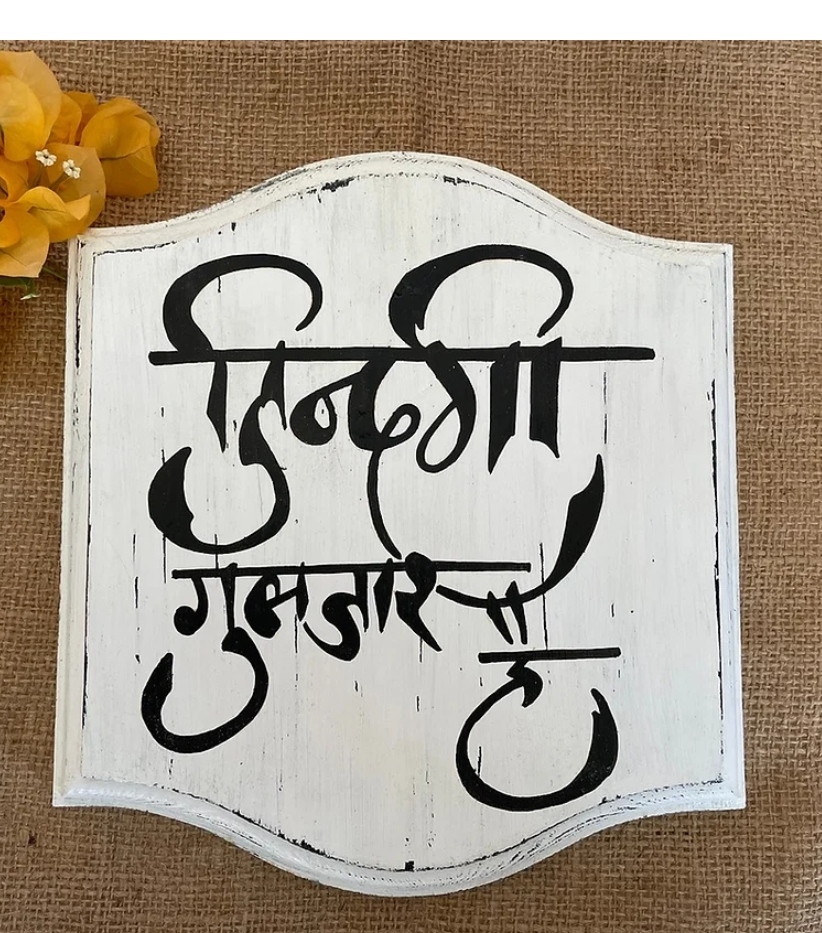 जिन्दगी
गुलजार
है